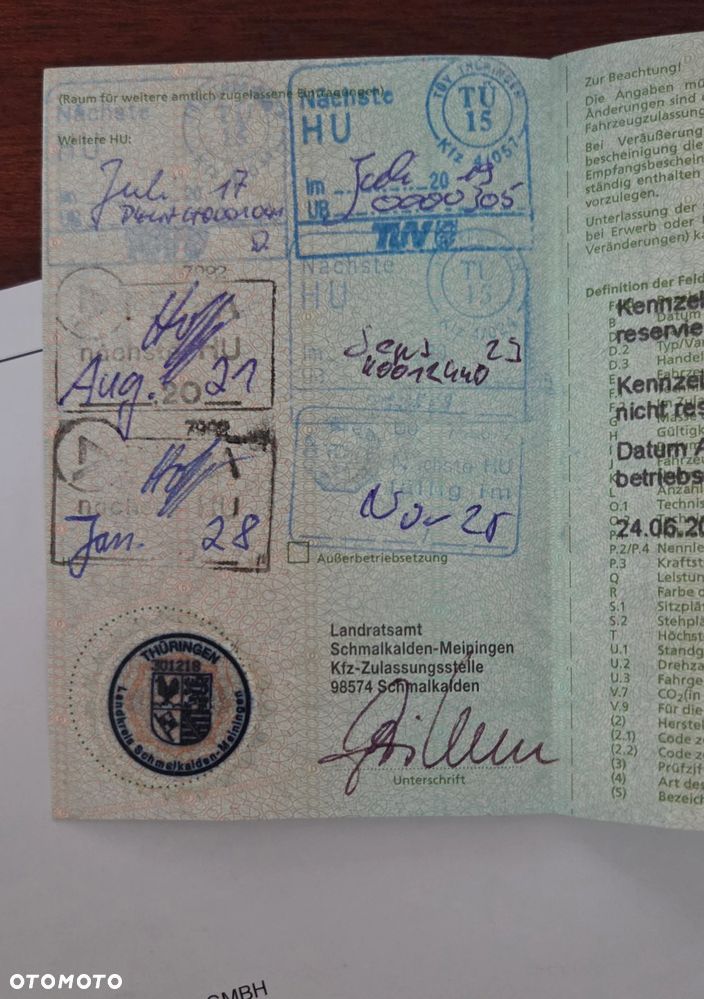 (Raum für weitere amtlich zugelassene Eintragungen)
Weitere HU:
Nächste
HU
Im Juli 20 17
Nächste
HU
TÜV THÜRINGEN
TÜ
15
Kfz 44057
Im Juli 20 19
UB 0000305
TÜV
7092
nächste HU
Aug. 20 21
Nächste
HU
TÜ
15
Im
UB
23
nächste HU
Jan. 28
Nächste HU
fällig im
Nov 25
Außerbetriebsetzung
THÜRINGEN
301218
Landkreis Schmalkalden-Meiningen
Landratsamt
Schmalkalden-Meiningen
Kfz-Zulassungsstelle
98574 Schmalkalden
Unterschrift
Zur Beachtung!
Die Angaben mü
Änderungen sind
Fahrzeugzulassung
Bei Veräußerung
bescheinigung die
Empfangsbeschein
ständig enthalten
vorzulegen.
Unterlassung der
bei Erwerb oder
Veränderungen) ka
Definition der Feld
Kennze
reservie
Kennze
nicht res
Datum A
betriebs
24.06.20
B
D.2 Typ/Var
D.3 Handel
O.1 Techni
P.2/P.4 Nennle
P.3 Kraftst
Q Leistun
R Farbe d
S.1 Sitzplä
S.2 Stehplä
T Höchst
U.1 Standg
U.2 Drehza
U.3 Fahrge
V.7 CO₂(in
V.9 Für die
(2) Herstel
(2.1) Code z
(2.2) Code z
(3) Prüfzif
(4) Art des
(5) Bezeich
OTOMOTO
GMBH